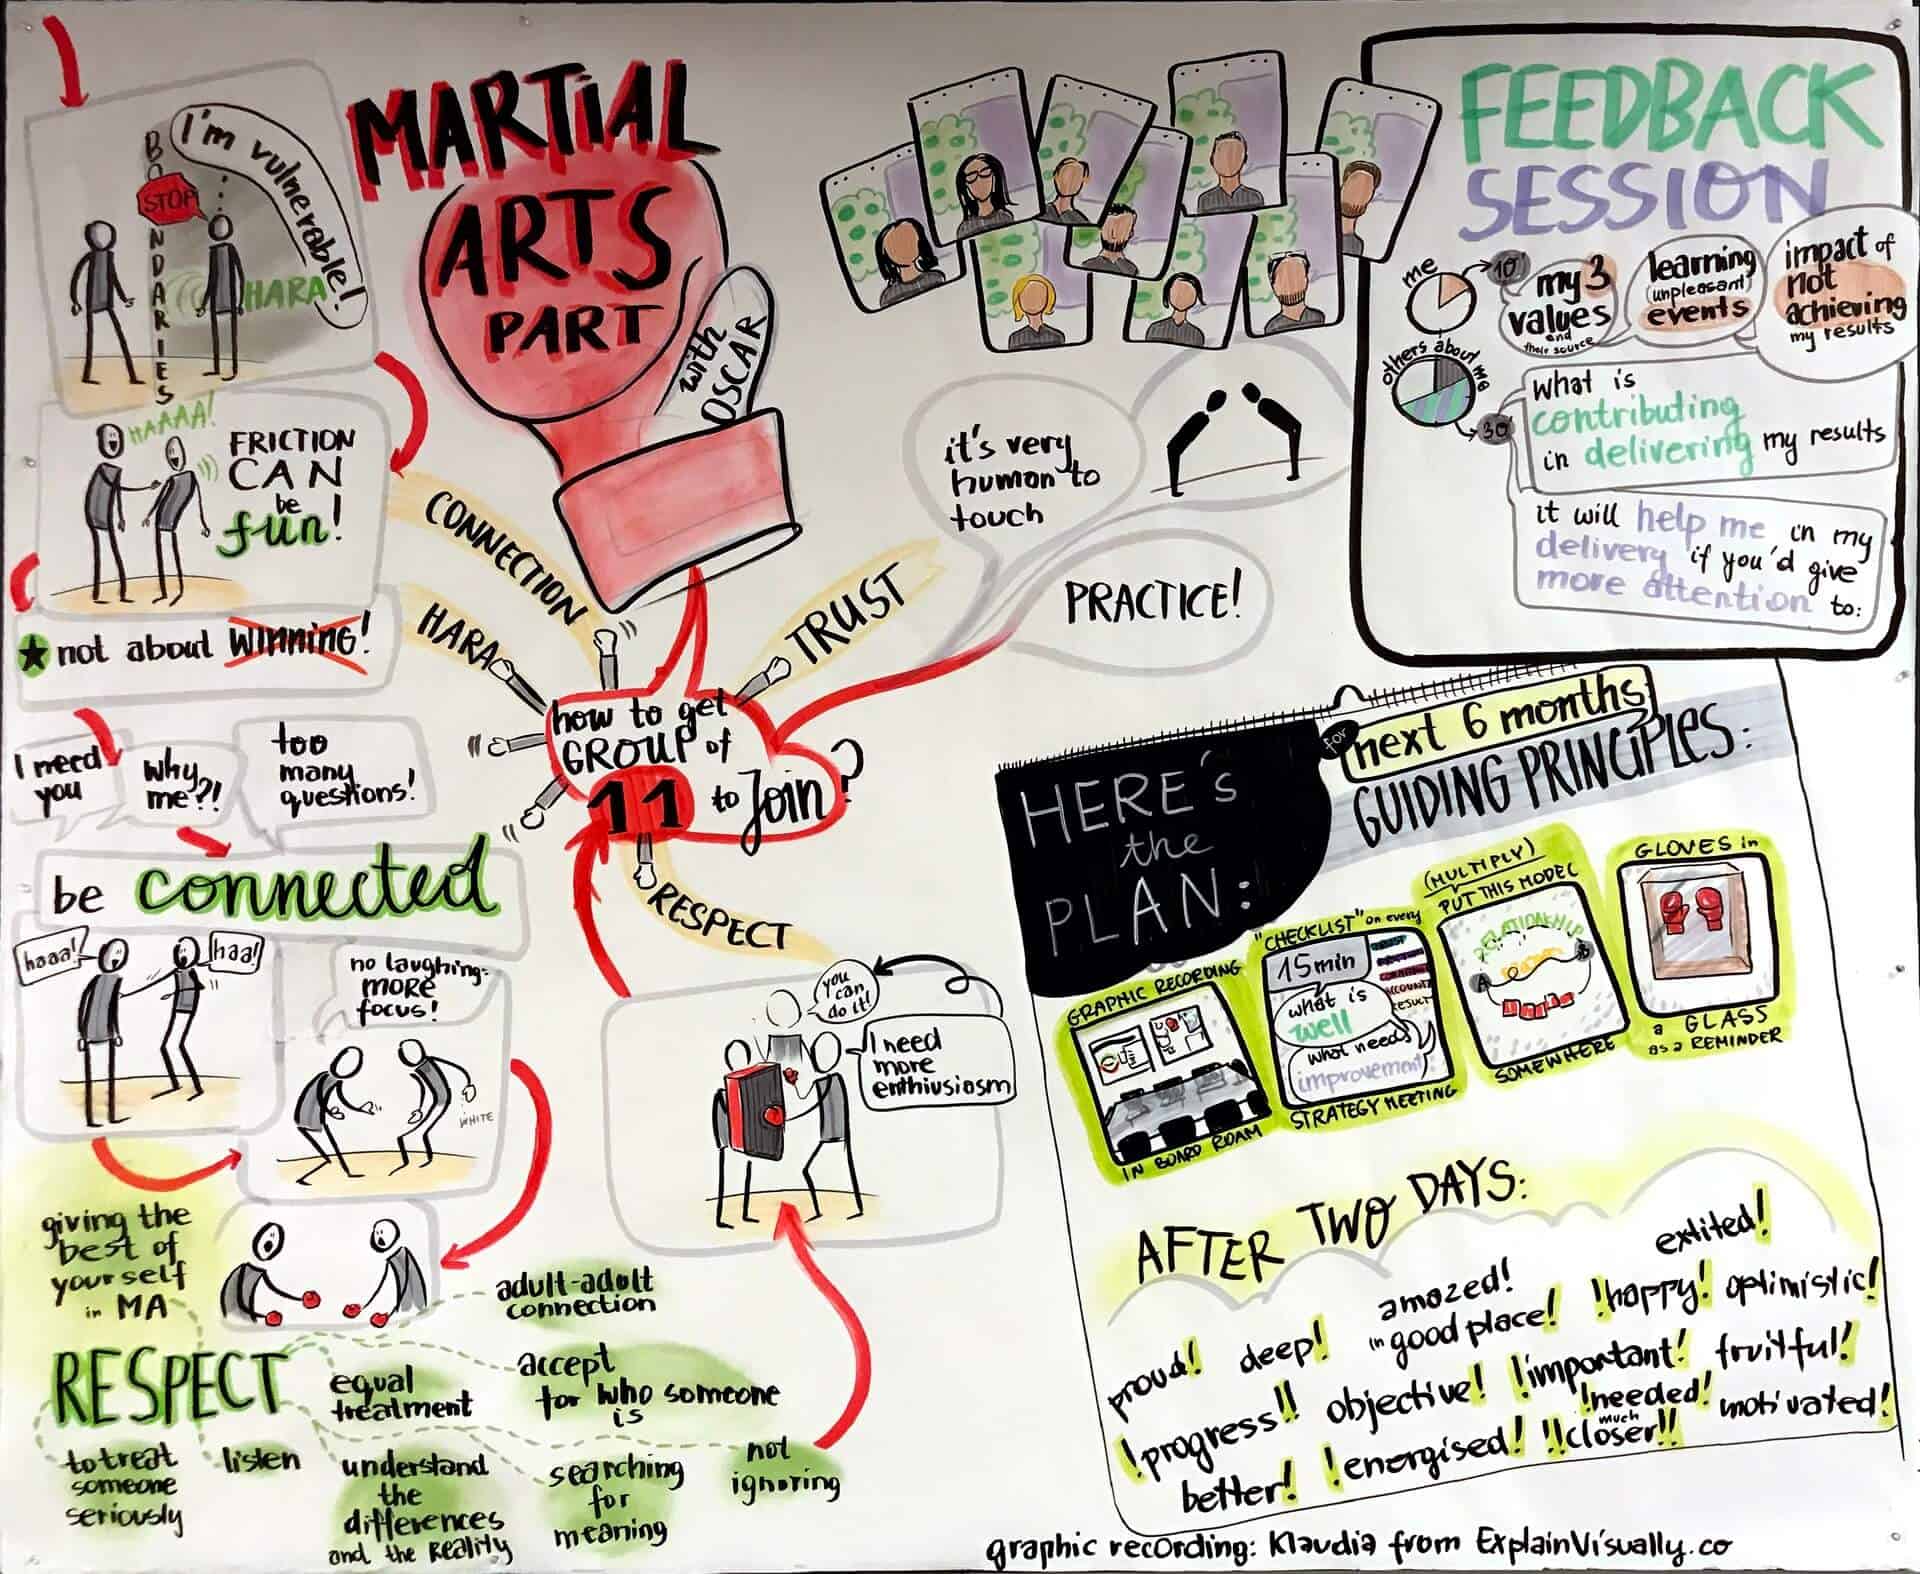 MARTiAL
ARTS
PART
with
OSCAR
BOUNDARIES
STOP
I'm vulnerable!
HARA
HAAAA!
FRICTION
CAN
be
fun!
not about WINNING!
I need
you
why
me?!
too
many
questions!
be connected
haaa!
haa!
no laughing:
MORE
focus!
WHITE
giving the
best of
yourself
in MA
RESPECT
adult-adult
connection
equal
treatment
accept
for who someone
is
to treat
someone
seriously
listen
understand
the
differences
and the Reality
searching
for
meaning
not
ignoring
CONNECTION
HARA
TRUST
RESPECT
how to get
GROUP of
11 to Join?
it's very
human to
touch
PRACTICE!
you
can
do it!
I need
more
enthiusiasm
FEEDBACK
SESSION
me
10'
my 3
values
and
their source
learning
(unpleasant)
events
impact of
not
achieving
my results
others about me
30'
what is
contributing
in delivering my results
it will help me in my
delivery if you'd give
more attention to:
HERE's
the
PLAN:
for
next 6 months
GUIDING PRINCIPLES:
GRAPHIC RECORDING
IN BOARD ROAM
"CHECKLIST" on every
15min
what is
well
what needs
improvement!
STRATEGY MEETING
(MULTIPLY)
PUT THIS MODEL
RELATIONSHIP
A
B
SOMEWHERE
GLOVES in
a GLASS
as a REMINDER
AFTER TWO DAYS:
extited!
amazed!
!happy! optimistic!
proud! deep! in good place!
!important! fruitful!
!progress!! objective!
!needed! motivated!
better! !energised! !!much closer!!
graphic recording: Klaudia from ExplainVisually.co